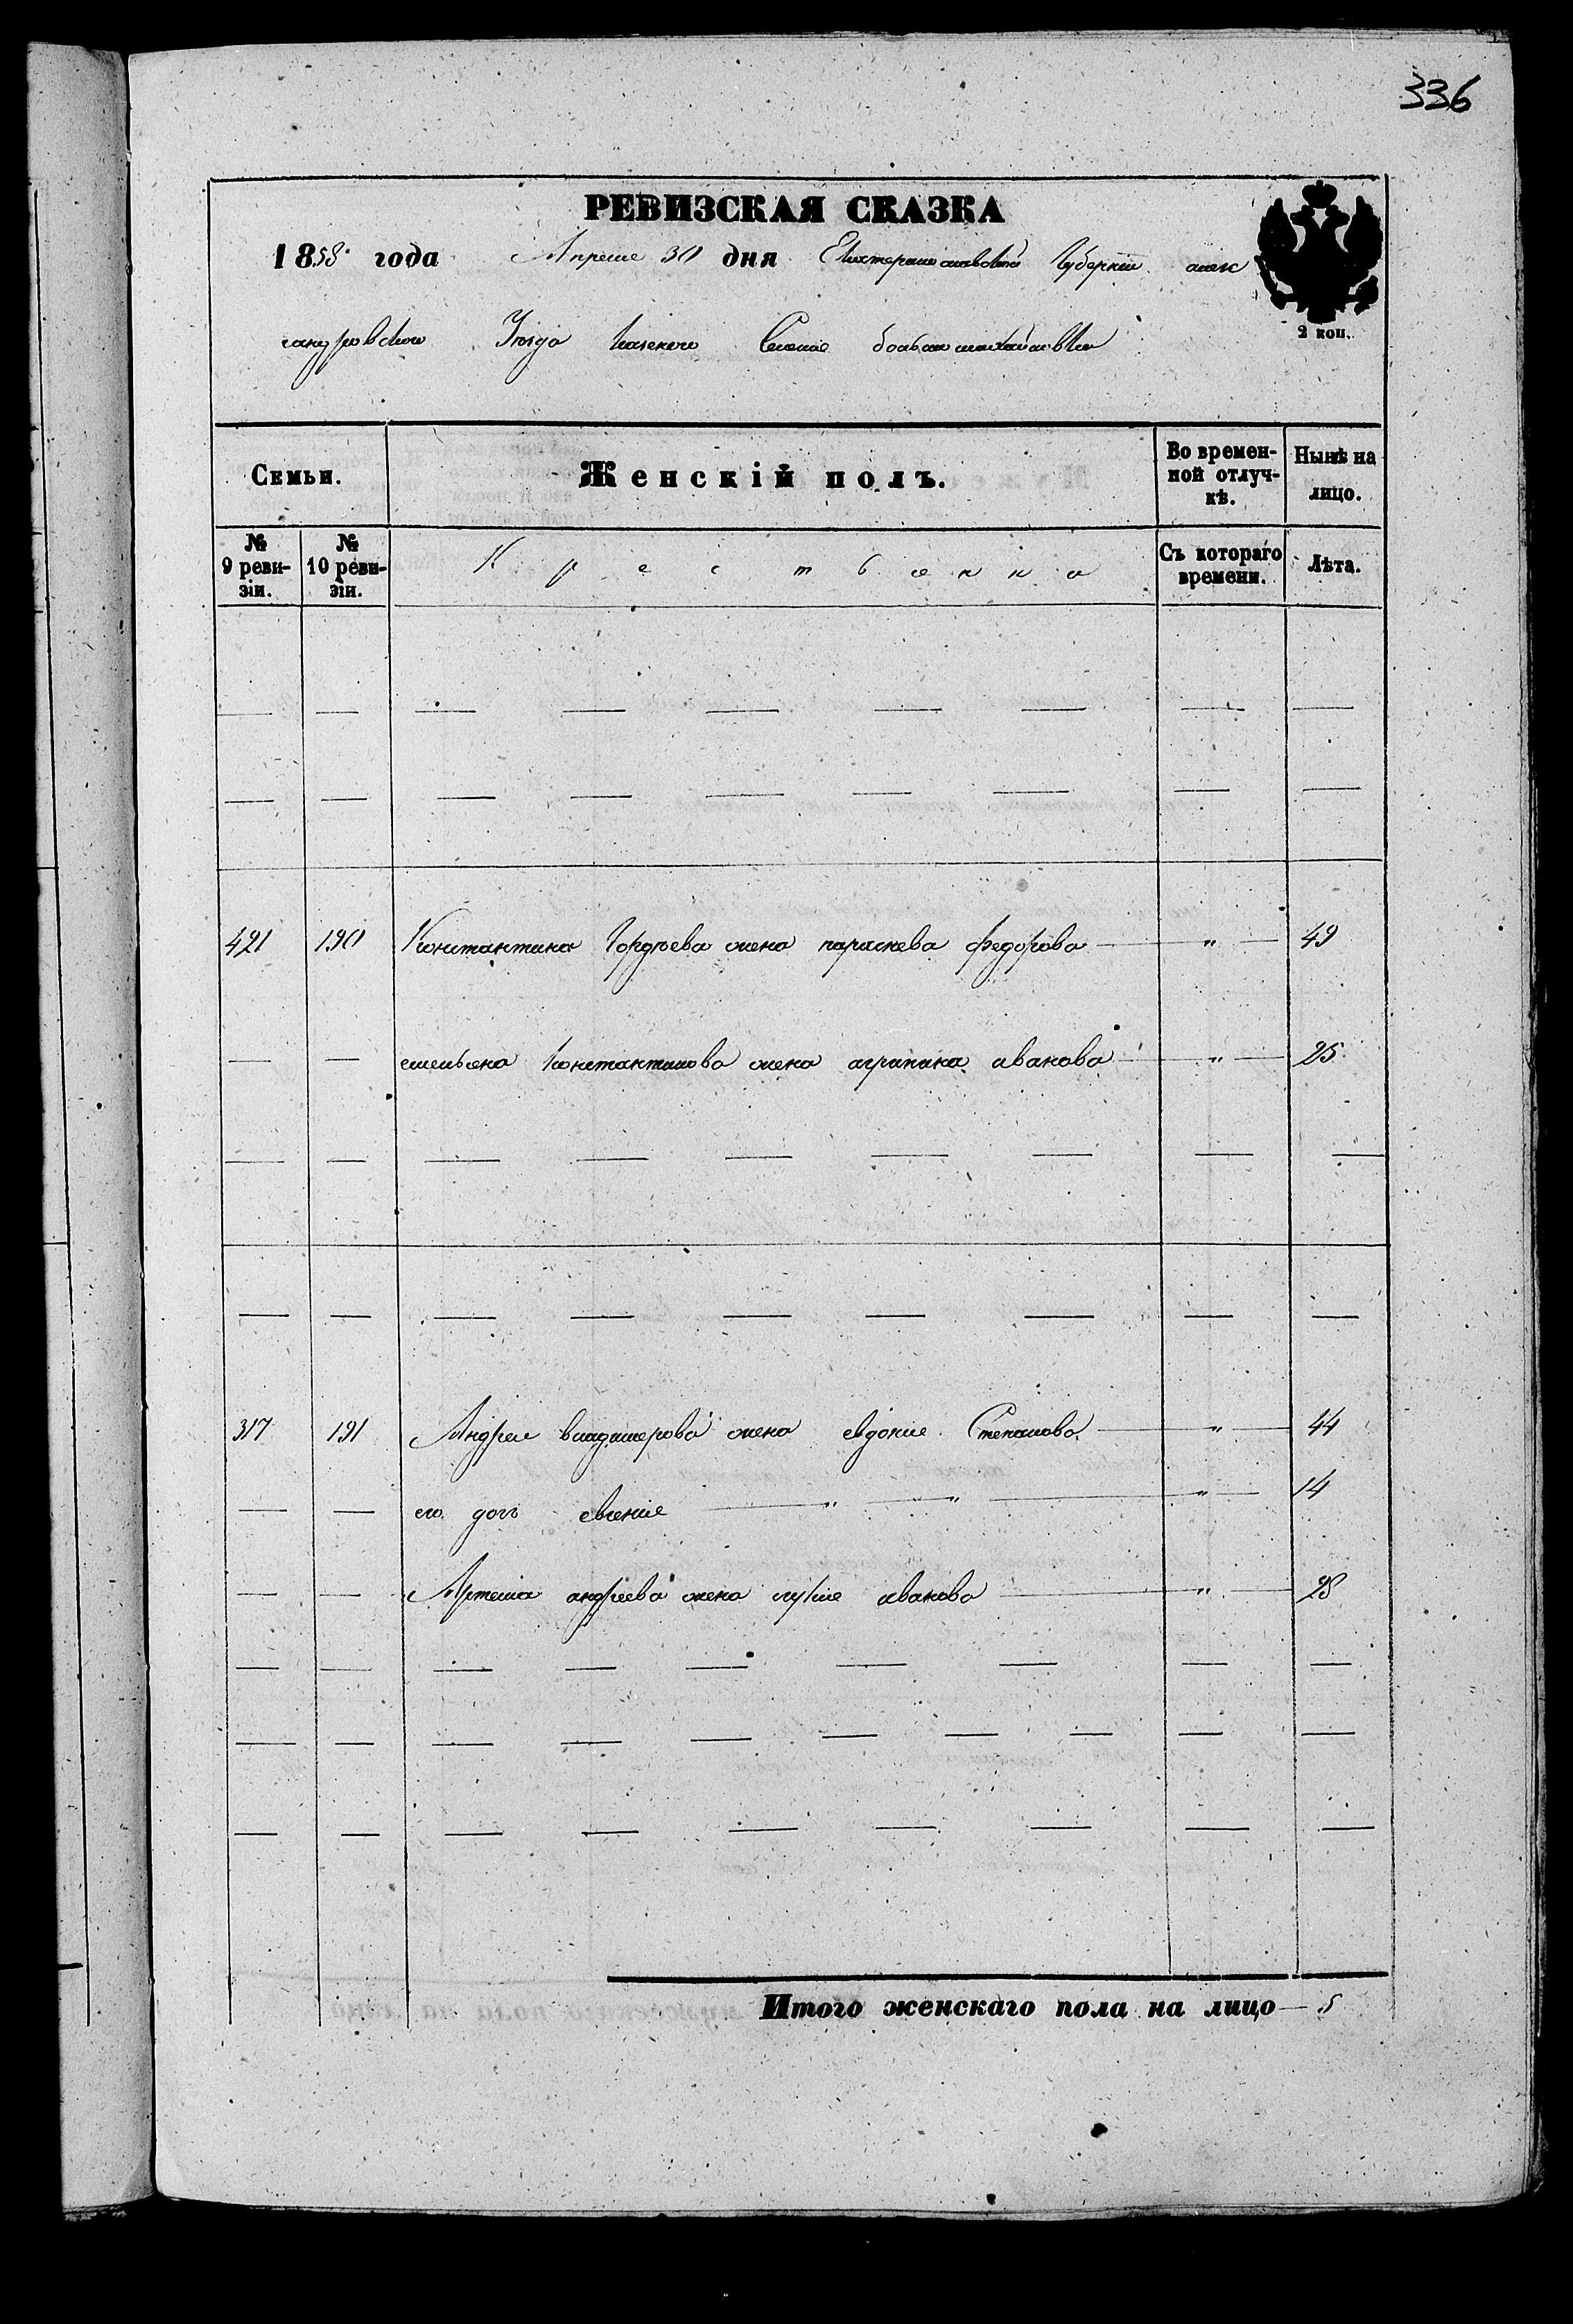 336
РЕВИЗСКАЯ СКАЗКА
1858 года Апреля 30 дня Екатеринославской Губернии алек
сандровского Уезда казенного Селения большой михайловки
2 коп.
Семьи.
Женскій полъ.
Во времен-
ной отлуч-
кѣ.
Нынѣ на
лицо.
№
9 реви-
зіи.
№
10 реви-
зіи.
Крестьянка
Съ котораго
времени.
Лѣта.
421 190 Константина Гордѣева жена параскева федорова — " — 49
— — емельяна Константинова жена агрипина иванова — " — 25
317 191 Андрея владимерова жена евдокия Степанова — " — 44
— — его дочь евгения — " — " — " — 14
— — Артема андреева жена иванова — " — 28
Итого женскаго пола на лицо — 5